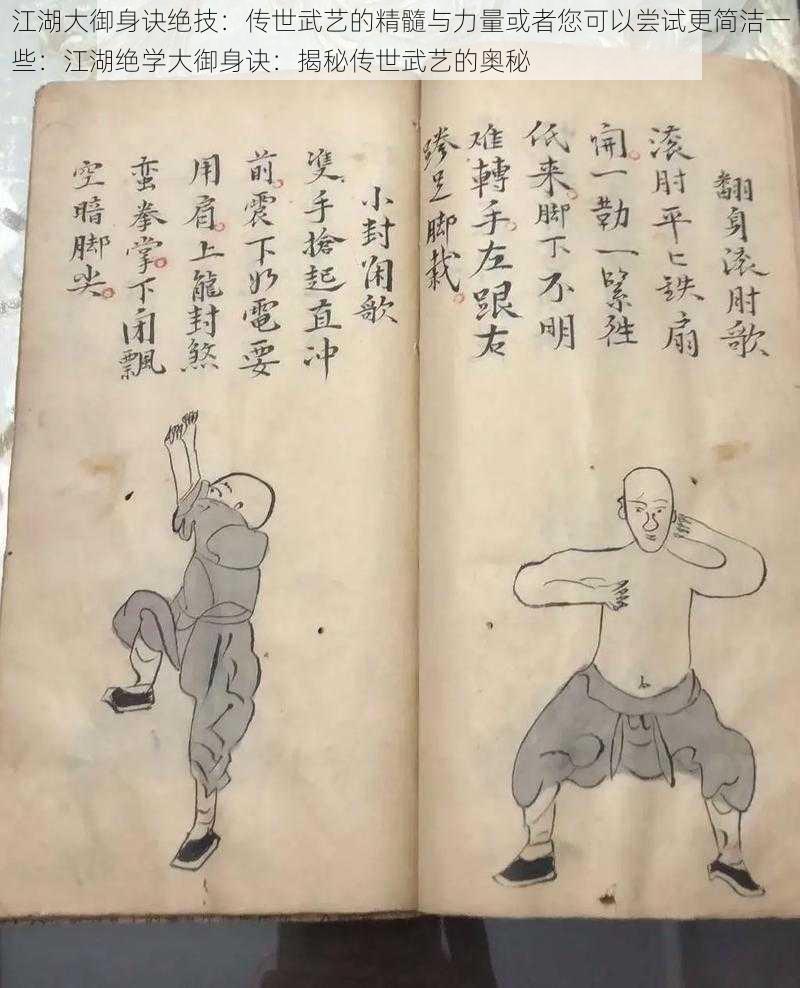 江湖大御身诀绝技：传世武艺的精髓与力量或者您可以尝试更简洁一
些：江湖绝学大御身诀：揭秘传世武艺的奥秘
翻身滚肘歌
滚肘平匕鉄扇
開一勒一緊
低来脚下不明
难轉手左跟右
跨足脚栽。
小封闲歌
雙手搶起直冲
前。震下如電要
用肩。上龍封煞
蛮拳掌。下闭飄
空暗脚尖。